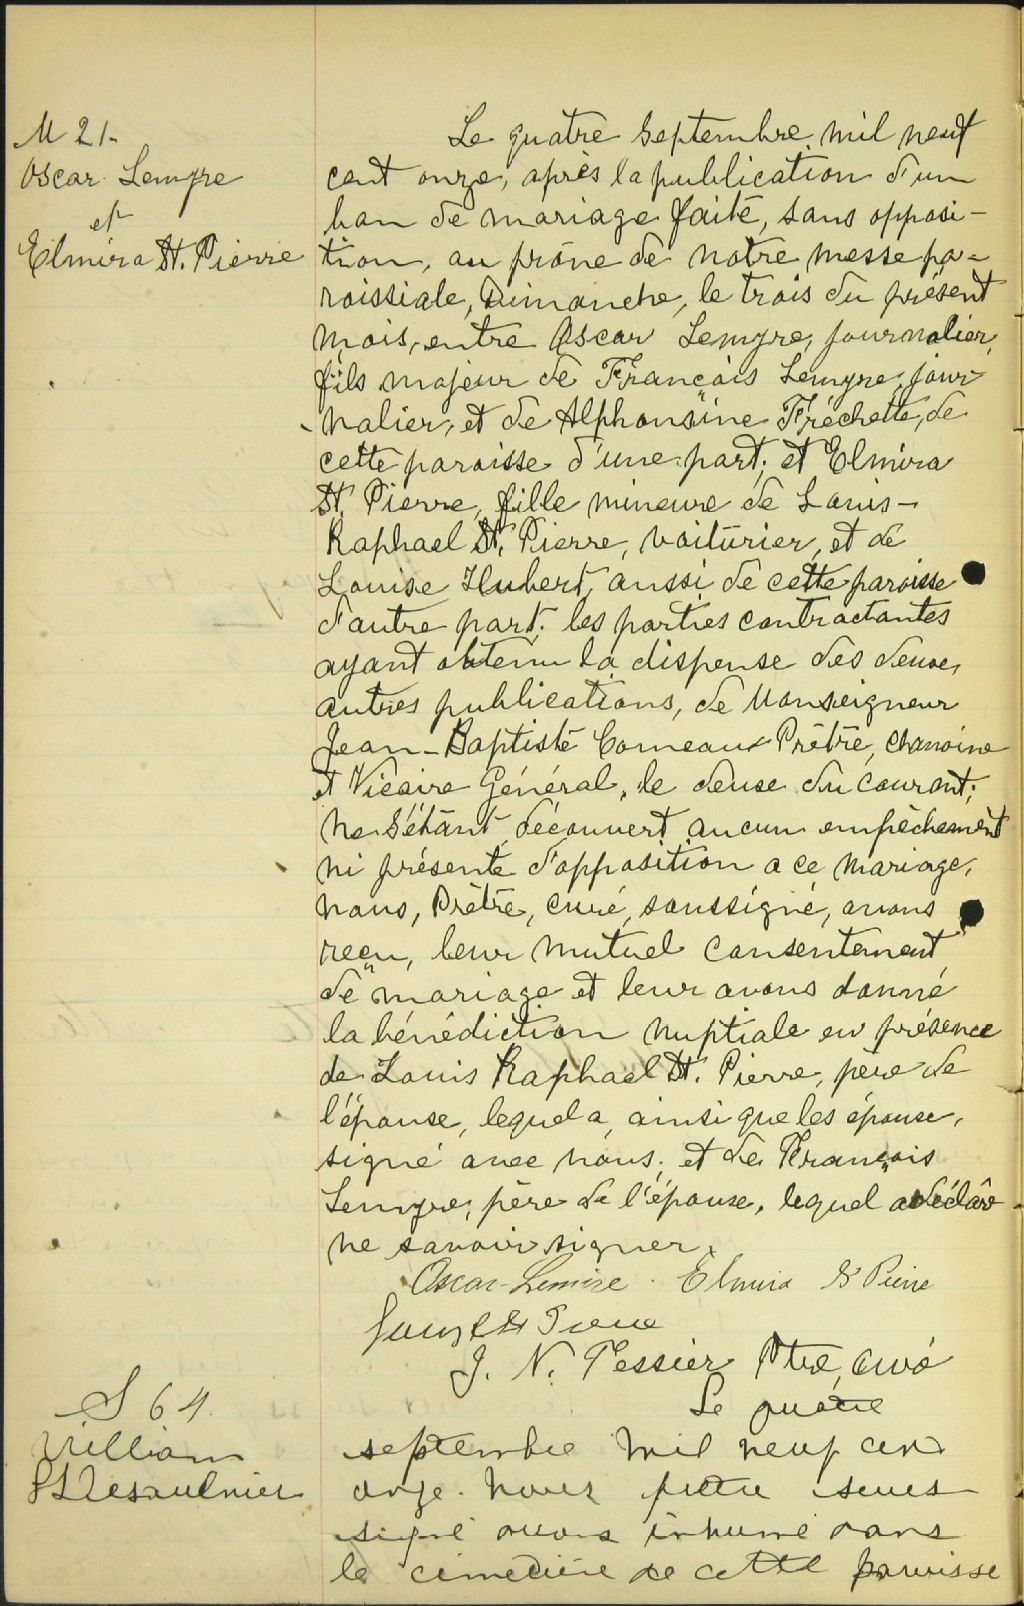 M 21-
Oscar Lemyre
et
Elmira St. Pierre
Le quatre Septembre mil neuf
cent onze, après la publication d'un
ban de mariage faite, sans opposi-
tion, au prône de notre messe pa-
roissiale, Dimanche, le trois du présent
mois, entre Oscar Lemyre, journalier,
fils majeur de François Lemyre, jour-
nalier, et de Alphonsine Fréchette, de
cette paroisse d'une part; et Elmira
St. Pierre, fille mineure de Louis-
Raphael St. Pierre, voiturier, et de
Louise Hubert, aussi de cette paroisse
d'autre part; les parties contractantes
ayant obtenu la dispense des deux
autres publications, de Monseigneur
Jean-Baptiste Comeau Prêtre, Chanoine
et Vicaire Général, le deux du courant;
ne s'étant découvert aucun empêchement
ni présenté d'opposition a ce mariage,
nous, Prêtre, curé, soussigné, avons
reçu, leur mutuel consentement
de mariage et leur avons donné
la bénédiction nuptiale en présence
de Louis Raphael St. Pierre, père de
l'épouse, lequel a, ainsi que les époux,
signé avec nous; et de François
Lemyre, père de l'épouse, lequel a déclaré
ne savoir signer.
Oscar Lemire Elmira St Pierre
St Pierre
J. N. Tessier Ptre, curé
S 64.
William
Desaulnier
Le quatre
septembre mil neuf cent
onze nous prêtre sous
signé avons inhumé dans
le cimetière de cette paroisse